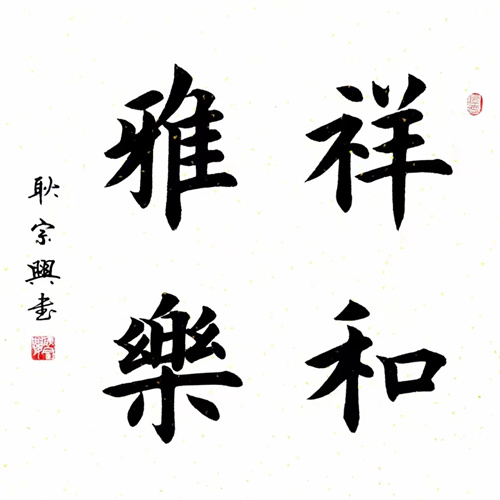 祥和
雅樂
耿宗興书